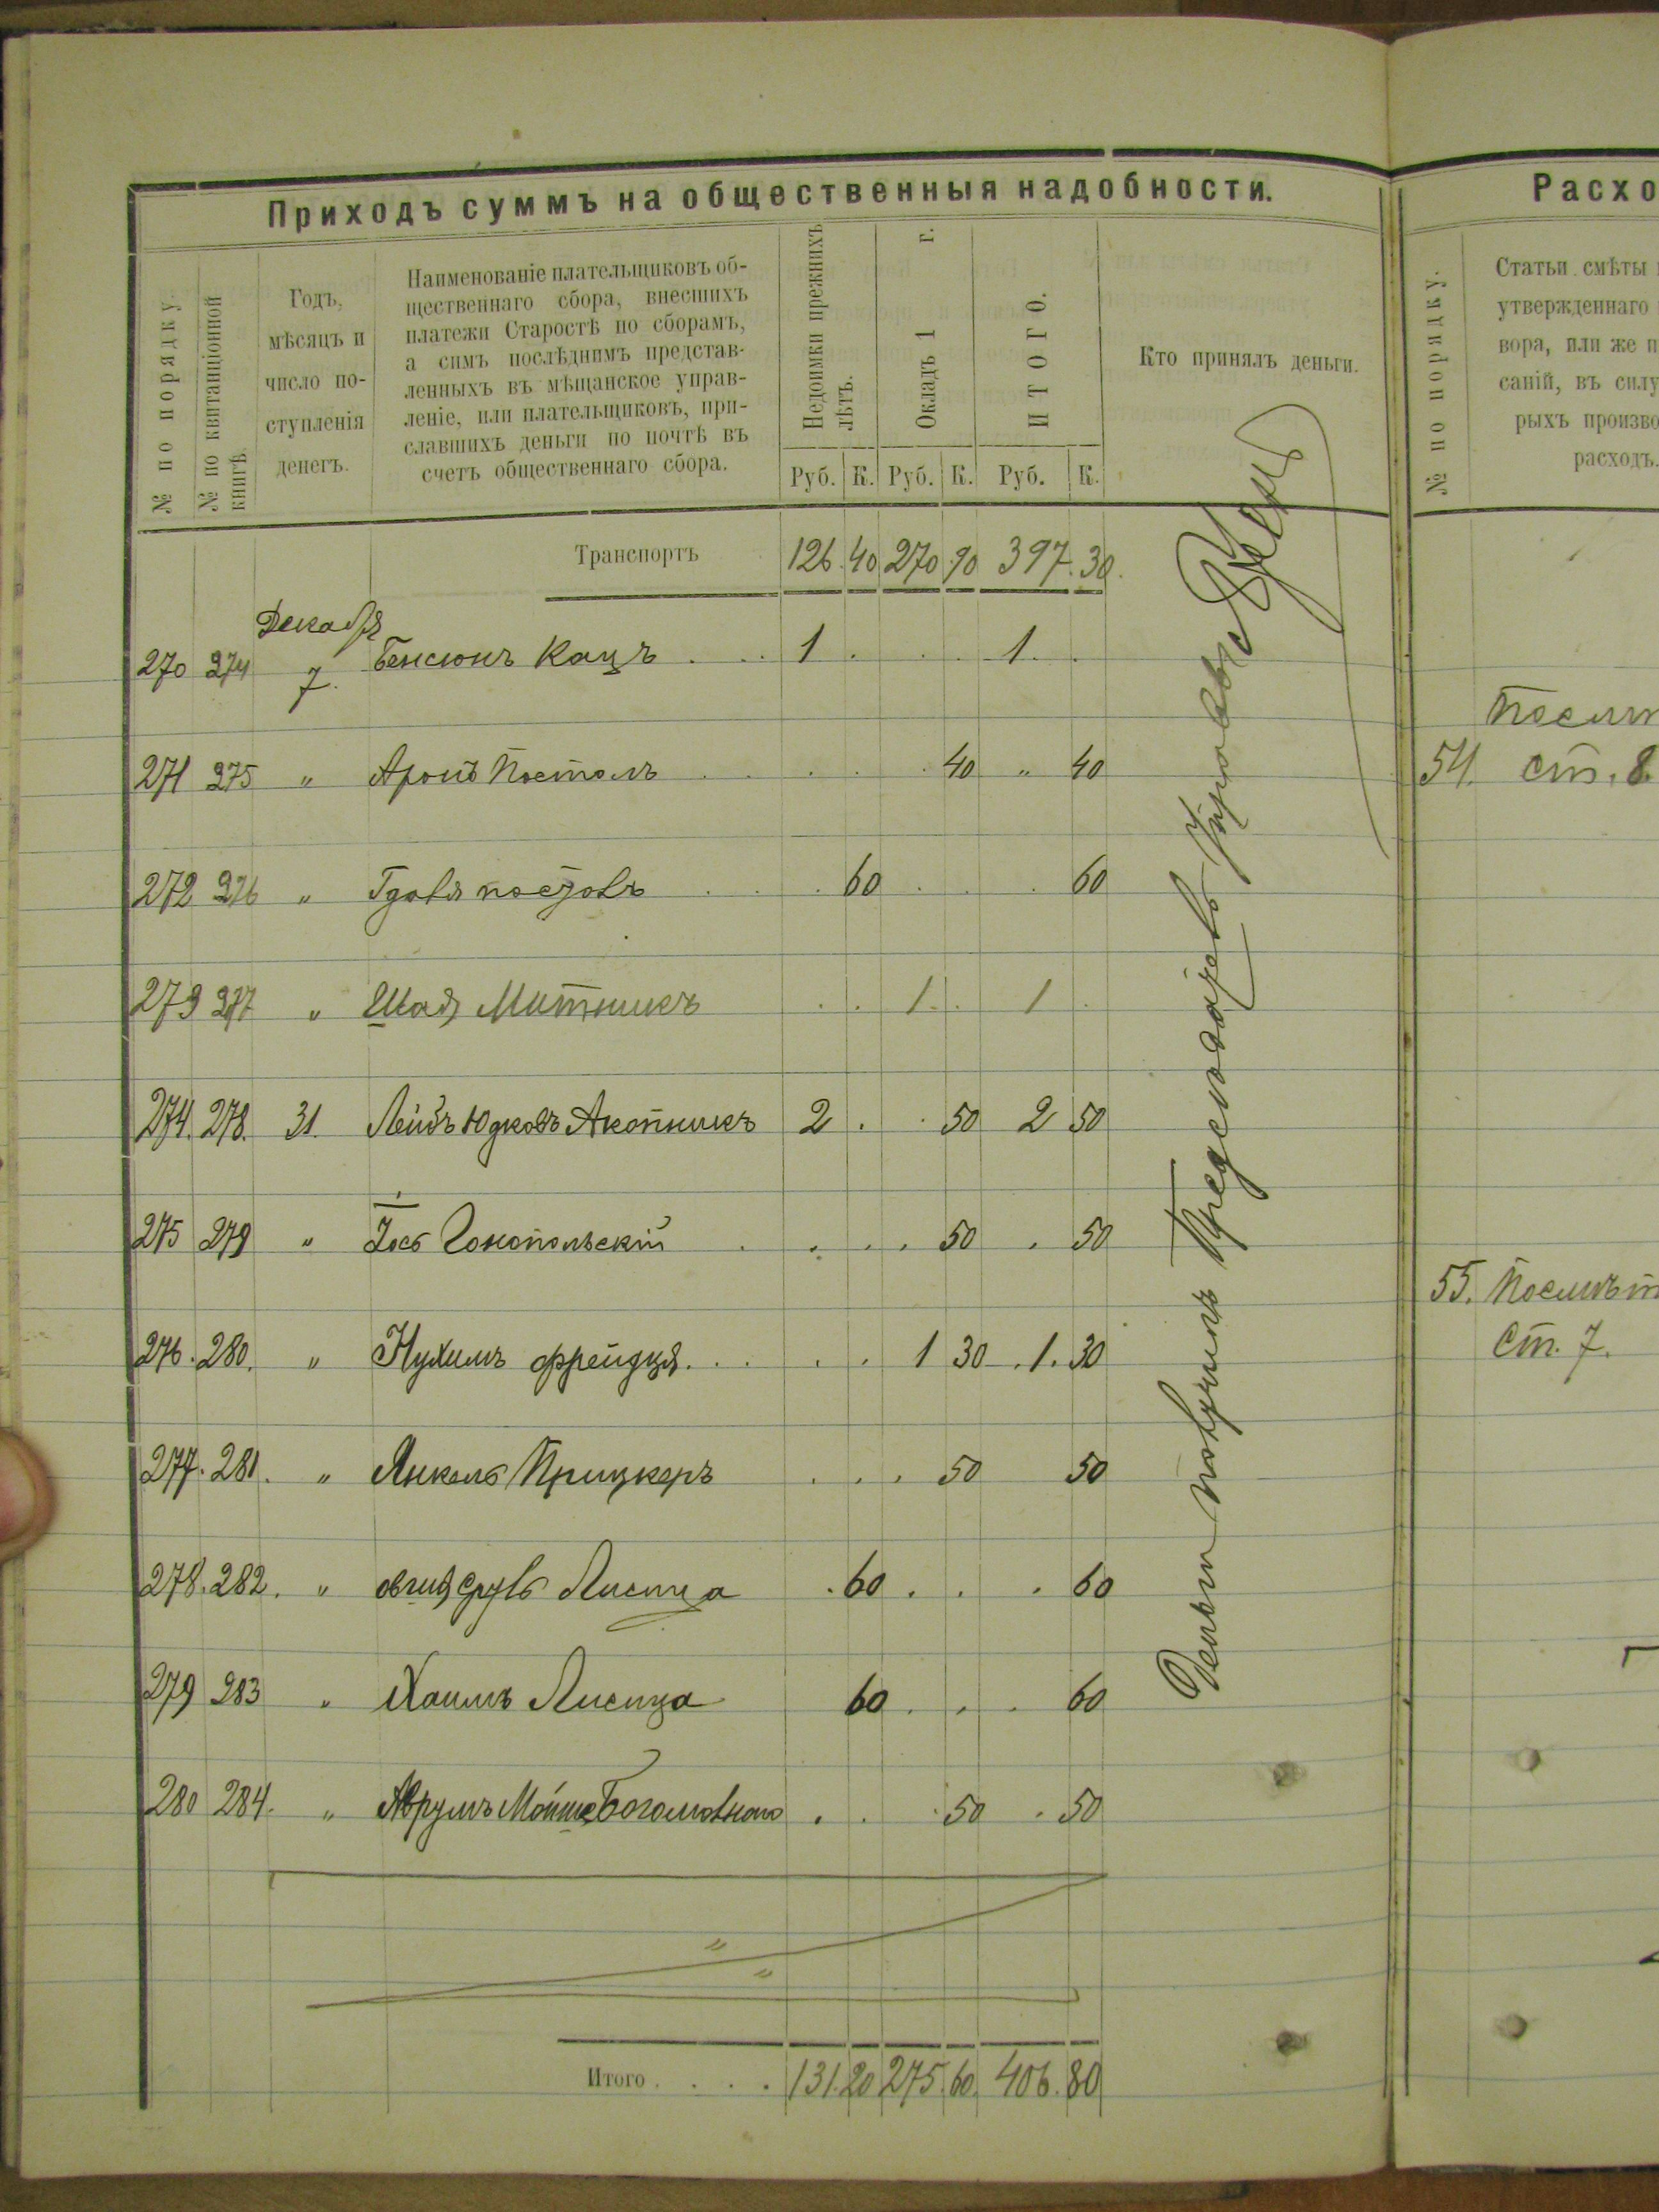 Приходъ суммъ на общественныя надобности.
№ по порядку.
№ по квитанціонной книгѣ.
Годъ,
мѣсяцъ и
число по-
ступленія
денегъ.
Наименованіе плательщиковъ об-
щественнаго сбора, внесшихъ
платежи Старостѣ по сборамъ,
а симъ послѣднимъ представ-
ленныхъ въ мѣщанское управ-
леніе, или плательщиковъ, при-
славшихъ деньги по почтѣ въ
счетъ общественнаго сбора.
Недоимки прежнихъ
лѣтъ.
Окладъ 1 г.
ИТОГО.
Кто принялъ деньги.
Руб. К. Руб. К. Руб. К.
Транспортъ 126 40 270 90 397 30
Декабря
270 274 7. Бенсіонъ Кацъ . . 1 . . . 1 .
271 275 " Аронъ Постолъ . . . . 40 " 40
272 276 " . . 60 . . . 60
273 277 " Шая Митникъ . . 1 . 1 .
274. 278. 31. Лейбъ Юдковъ Акопникъ 2 . . 50 2 50
275 279 " Іось . . . . 50 . 50
276. 280. " Нухимъ . . . . 1 30 . 1. 30
277. 281. " Янкель Прицкеръ . . . 50 50
278. 282. " Лисица . 60 . . . 60
279 283 " Хаимъ Лисица 60 . . . 60
280 284. " Аврумъ Мойше . . . 50 . 50
Итого . . . . 131. 20 275. 60. 406. 80
Деньги получилъ Предсѣдатель Управы
Расхо
№ по порядку.
Статьи смѣты
утвержденнаго
вора, или же п
саній, въ силу
рыхъ произво
расходъ.
54. ст. 8.
55. Посмѣт
Ст. 7.